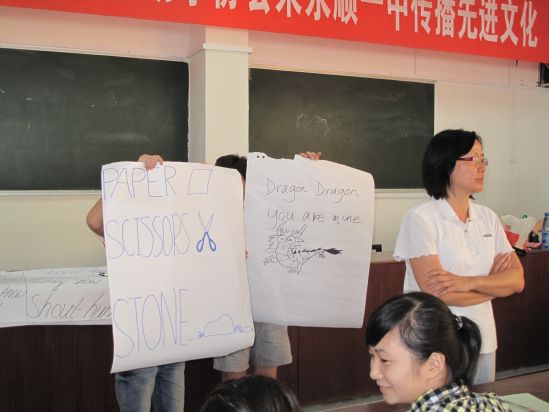 协会来永顺一中传播先进文化
PAPER
SCISSORS
STONE
Dragon Dragon
you are mine
shout